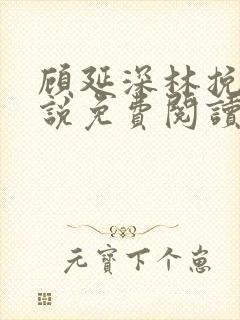 顾延深林挽
說免費閱讀
元寶下个崽